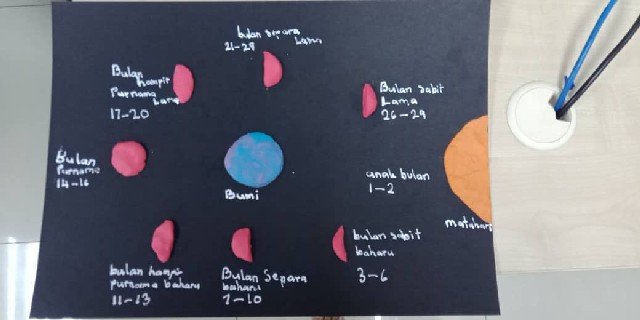 bulan separa
lama
21-25
Bulan
hampir
Purnama
lama
17-20
Bulan sabit
Lama
26-29
Bulan
Purnama
14-16
Bumi
anak bulan
1-2
matahari
bulan hampir
purnama baharu
11-13
Bulan Separa
baharu
7-10
bulan sabit
baharu
3-6